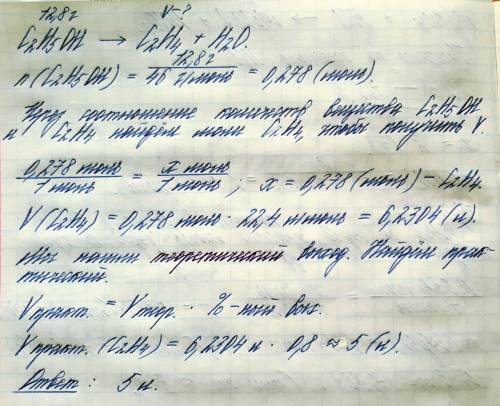 12,8 г V-?
C₂H₅OH → C₂H₄ + H₂O.
n(C₂H₅OH) = 12,8 г / 46 г/моль = 0,278 (моль).
Через соотношение количеств вещества C₂H₅OH
и C₂H₄ найдём моли C₂H₄, чтобы получить V.
0,278 моль / 1 моль = x моль / 1 моль ; x = 0,278 (моль) – C₂H₄.
V (C₂H₄) = 0,278 моль · 22,4 л/моль = 6,2304 (л).
Мы нашли теоретический выход. Найдём прак-
тический.
V практ. = V теор. · %-ный вых.
V практ. (C₂H₄) = 6,2304 л · 0,8 ≈ 5 (л).
Ответ : 5 л.